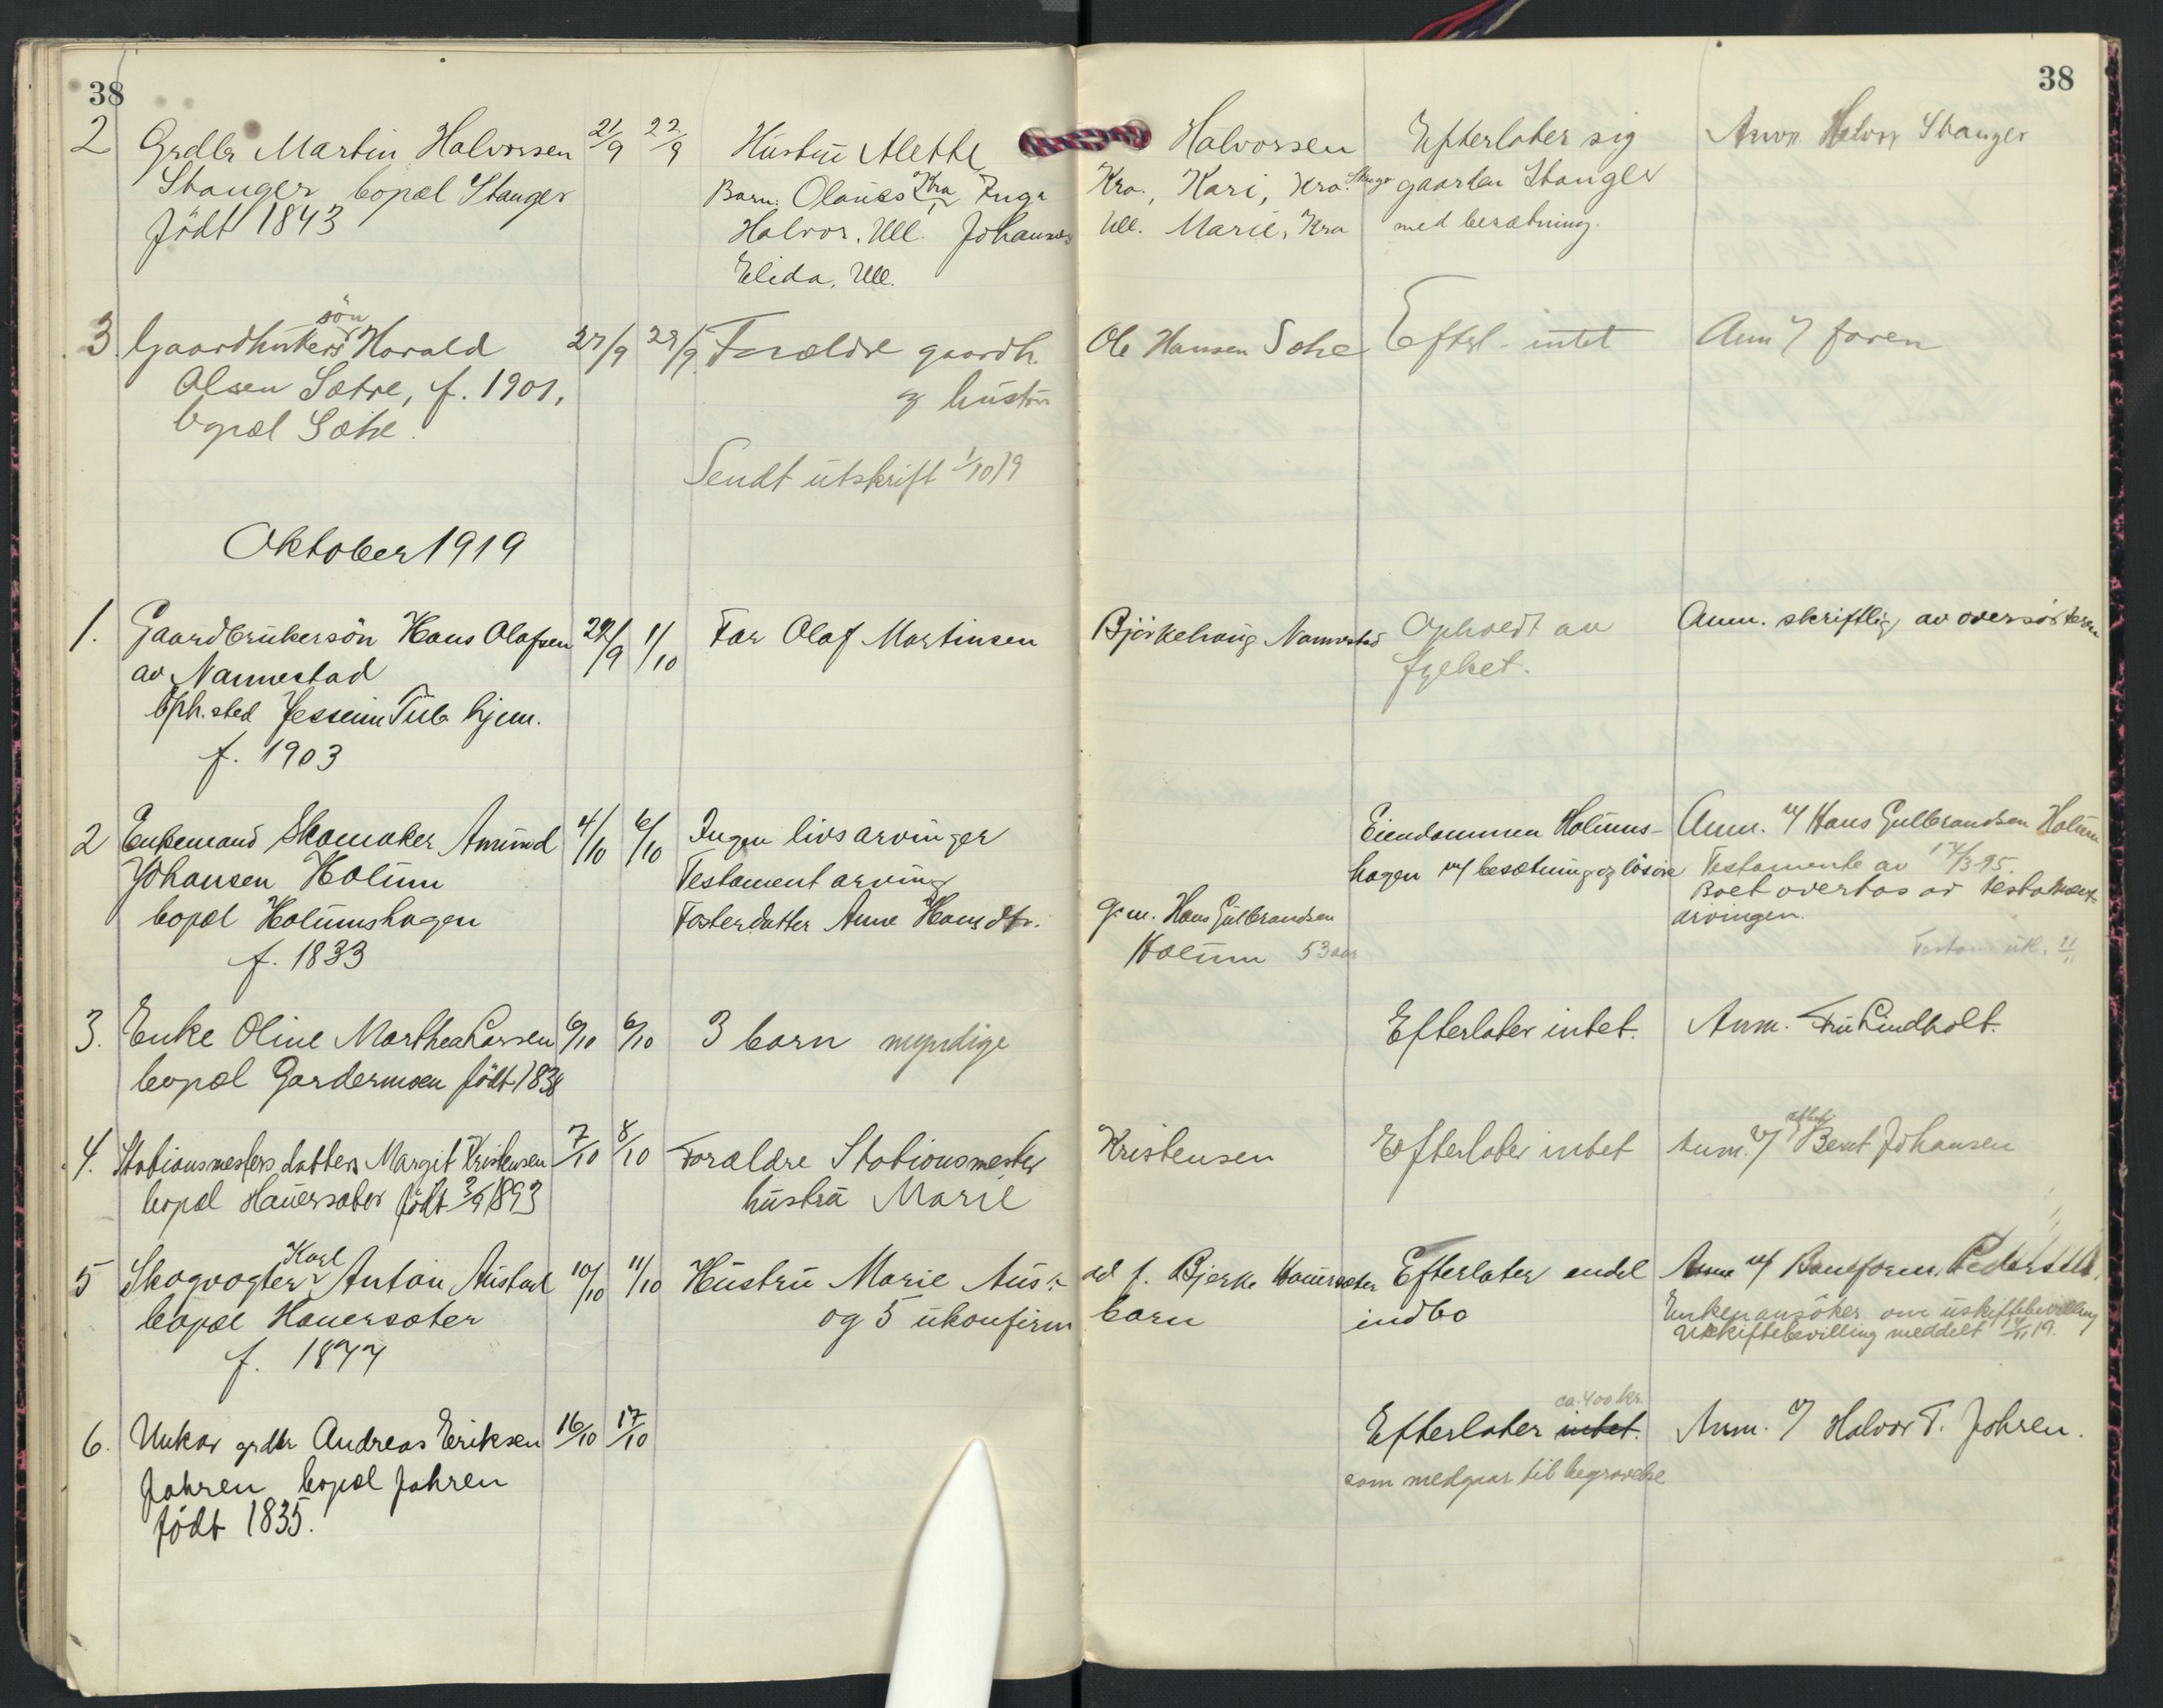 38
38
2 Grdbr Martin Halvorsen 21/9 22/9 Hustru Alette Halvorsen Efterlater sig Anm. Halvor Stanger
Stanger bopæl Stanger Barn: Olaues Kra Inga Kra., Kari, Kra. gaarden Stanger
født 1843 Halvor, Ull. Johannes Ull. Marie, Kra med besætning.
Elida, Ull.
3. Gaardbrukersøn Harald 27/9 29/9 Forældre gaardb. Ole Hansen Sætre Efterl. intet Anm v/ faren
Olsen Sætre, f. 1901, og hustru
bopæl Sætre.
Sendt utskrift 1/10 19
Oktober 1919
1. Gaardbrukersøn Hans Olafsen 29/9 1/10 Far Olaf Martinsen Bjørkehaug Nannestad Opholdt av Anm. skriftlig av oversøsteren
av Nannestad fylket.
Oph.sted Jessheim Tub hjem.
f. 1903
2 Enkemand Skomaker Amund 4/10 6/10 Ingen livsarvinger Eiendommen Holums- Anm. v/ Hans Gulbrandsen Holum
Johansen Holum Testament arving hagen m/ besætning og løsøre Testamente av 17/3 95.
bopæl Holumshagen Fosterdatter Anne Hansdtr. g.m. Hans Gulbrandsen Boet overtas av testament
f. 1833 Holum 53 aar arvingen.
Testam. utl.
3. Enke Oline Marthea Larsen 6/10 6/10 3 barn myndige Efterlater intet. Anm. Fru Lindholt.
bopæl Gardermoen født 1838
4. Stationsmesters datter Margit Kristensen 7/10 8/10 Forældre Stationsmester Kristensen Efterlater intet Anm. v/ Bernt Johansen
bopæl Hauersæter født 3/9 1893 hustru Marie
5 Skogvogter Karl Anton Austad 10/10 11/10 Hustru Marie Austad f. Bjerke Hauersæter Efterlater endel Anm v/ Baneform. Pedersen
bopæl Hauersæter og 5 ukonfirm barn indbo Enken ansøker om uskiftebevilling
f. 1877 Uskiftebevilling meddelt
6. Unkar grdbr Andreas Eriksen 16/10 17/10 Efterlater intet. ca. 400 kr. Anm. v/ Halvor T. Jahren.
Jahren bopæl Jahren som medgaar til begravelse
født 1835.